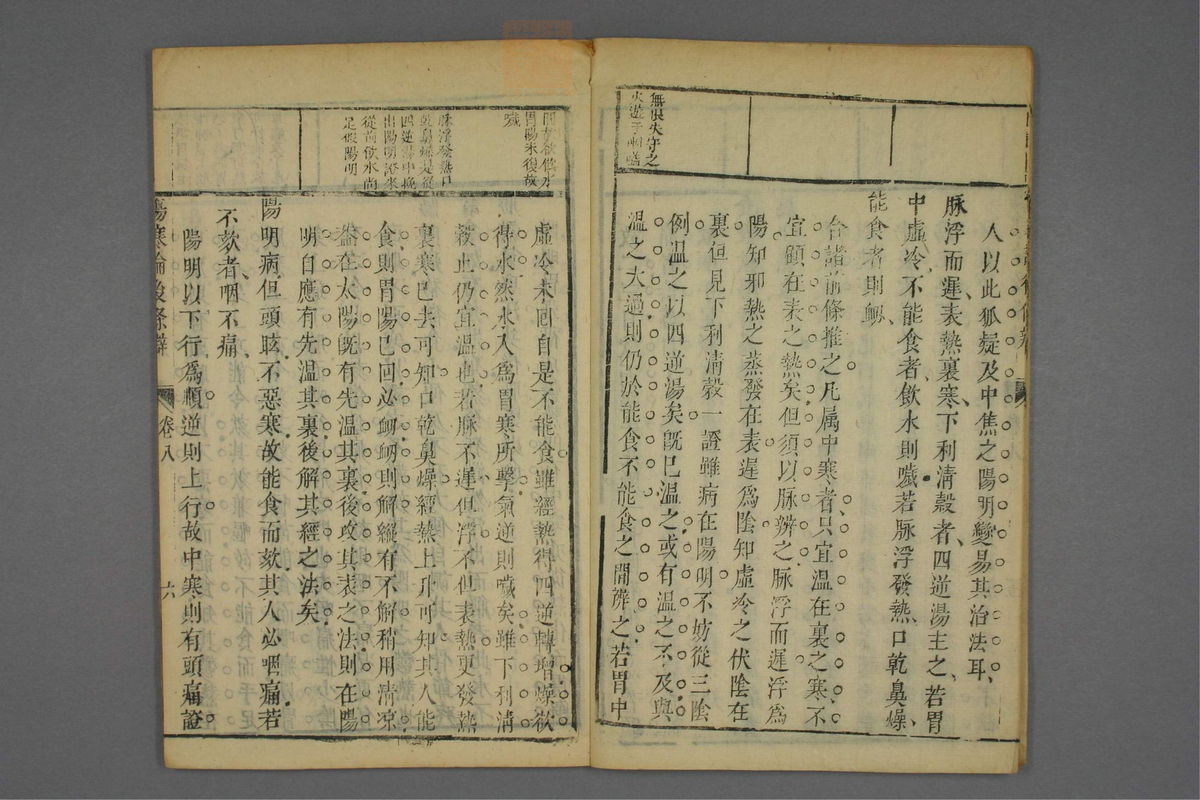 無根失守之
火遊于咽嗌
人以此狐疑及中焦之陽明變易其治法耳
脉浮而遲表熱裏寒下利清穀者四逆湯主之若胃
中虛冷不能食者飲水則噦若脉浮發熱口乾鼻燥
能食者則衂
合諸前條推之凡属中寒者只宜温在裏之寒不
宜顧在表之熱矣但須以脉辨之脉浮而遲浮爲
陽知邪熱之蒸發在表遲爲陰知虛冷之伏陰在
裏但見下利清穀一證雖病在陽明不妨從三陰
例温之以四逆湯矣旣已温之或有温之不及與
温之太過則仍於能食不能食之間辨之若胃中
胃陽未復故
噦
脉浮發熱口
乾鼻燥是從
四逆湯中挽
出陽明證來
從前飲水尚
是假陽明
虛冷未回自是不能食雖經熱得四逆轉增燥欲
得水然水入爲胃寒所擊氣逆則噦矣雖下利清
穀止仍宜温也若脉不遲但浮不但表熱更發熱
裏寒巳去可知口乾鼻燥經熱上升可知其人能
食則胃陽巳回必衂衂則解縱有不解稍用清凉
葢在太陽旣有先温其裏後攻其表之法則在陽
明自應有先温其裏後解其經之法矣
陽明病但頭眩不惡寒故能食而欬其人必咽痛若
不欬者咽不痛
陽明以下行爲順逆則上行故中寒則有頭痛證
傷寒論後條辨
卷八
六